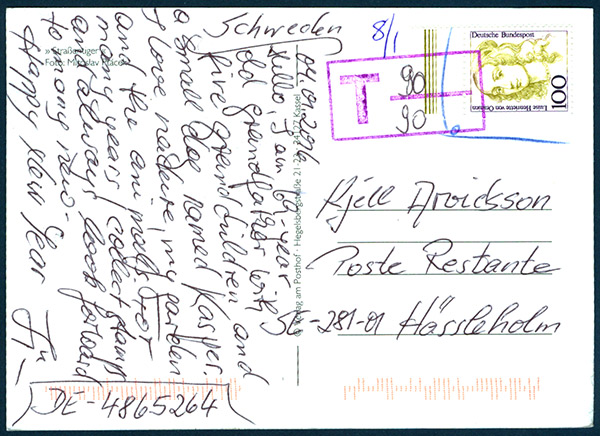 Schweden
04.01.2016
Hello, I am 69 year
old grandfather with
five grandchildren and
a small dog named Kasper.
I love nature, my garden
and the animals. For
many years I collect stamps
and always look forward
to many new.
Happy New Year
DE-4865264
» Straßenjunger
Foto: Miroslav Ptáček
© Verlag am Posthof · Hegelsbergstraße 21-23 · 34127 Kassel
8/1
T 90
90
Deutsche Bundespost
Luise Henriette von Oranien
100
Kjell Arvidsson
Poste Restante
SE-281-01 Hässleholm